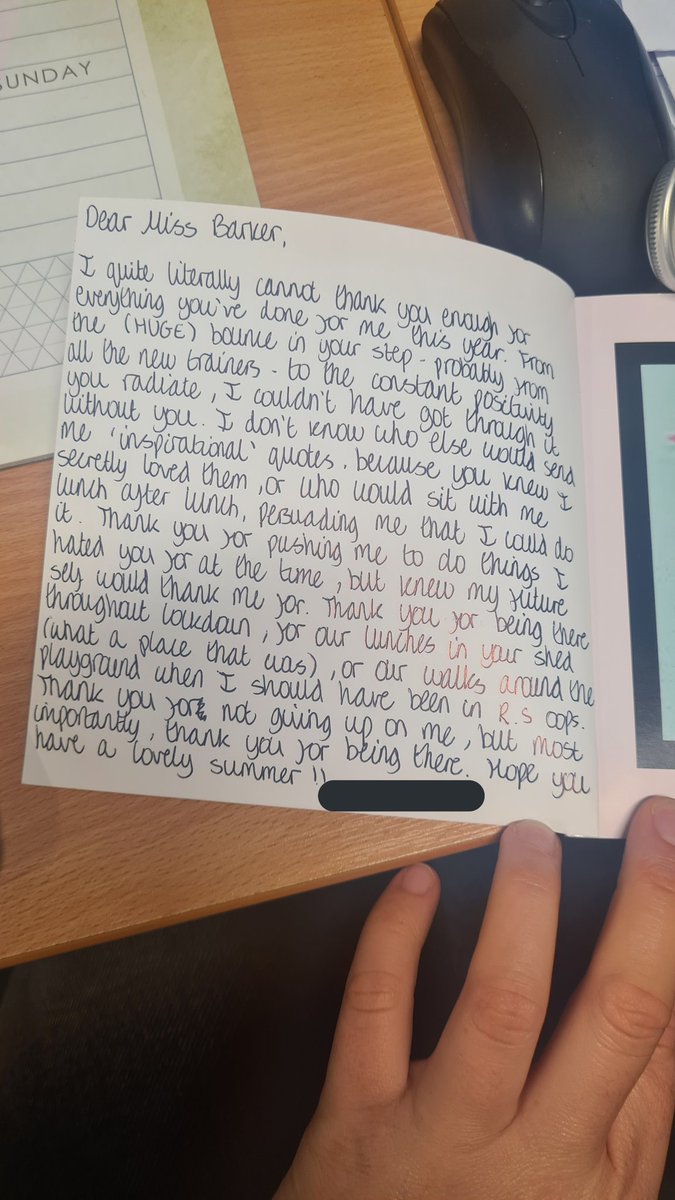 SUNDAY
Dear Miss Barker,
I quite literally cannot thank you enough for
everything you've done for me this year. From
the (HUGE) bounce in your step - probably from
all the new trainers - to the constant positivity
you radiate, I couldn't have got through it
without you. I don't know who else would send
me 'inspirational' quotes, because you knew I
secretly loved them, or who would sit with me
lunch after lunch, persuading me that I could do
it. Thank you for pushing me to do things I
hated you for at the time, but knew my future
self would thank me for. Thank you for being there
throughout lockdown, for our lunches in your shed
(what a place that was), or our walks around the
playground when I should have been in R.S oops.
Thank you for not giving up on me, but most
importantly, thank you for being there. Hope you
have a lovely summer!!